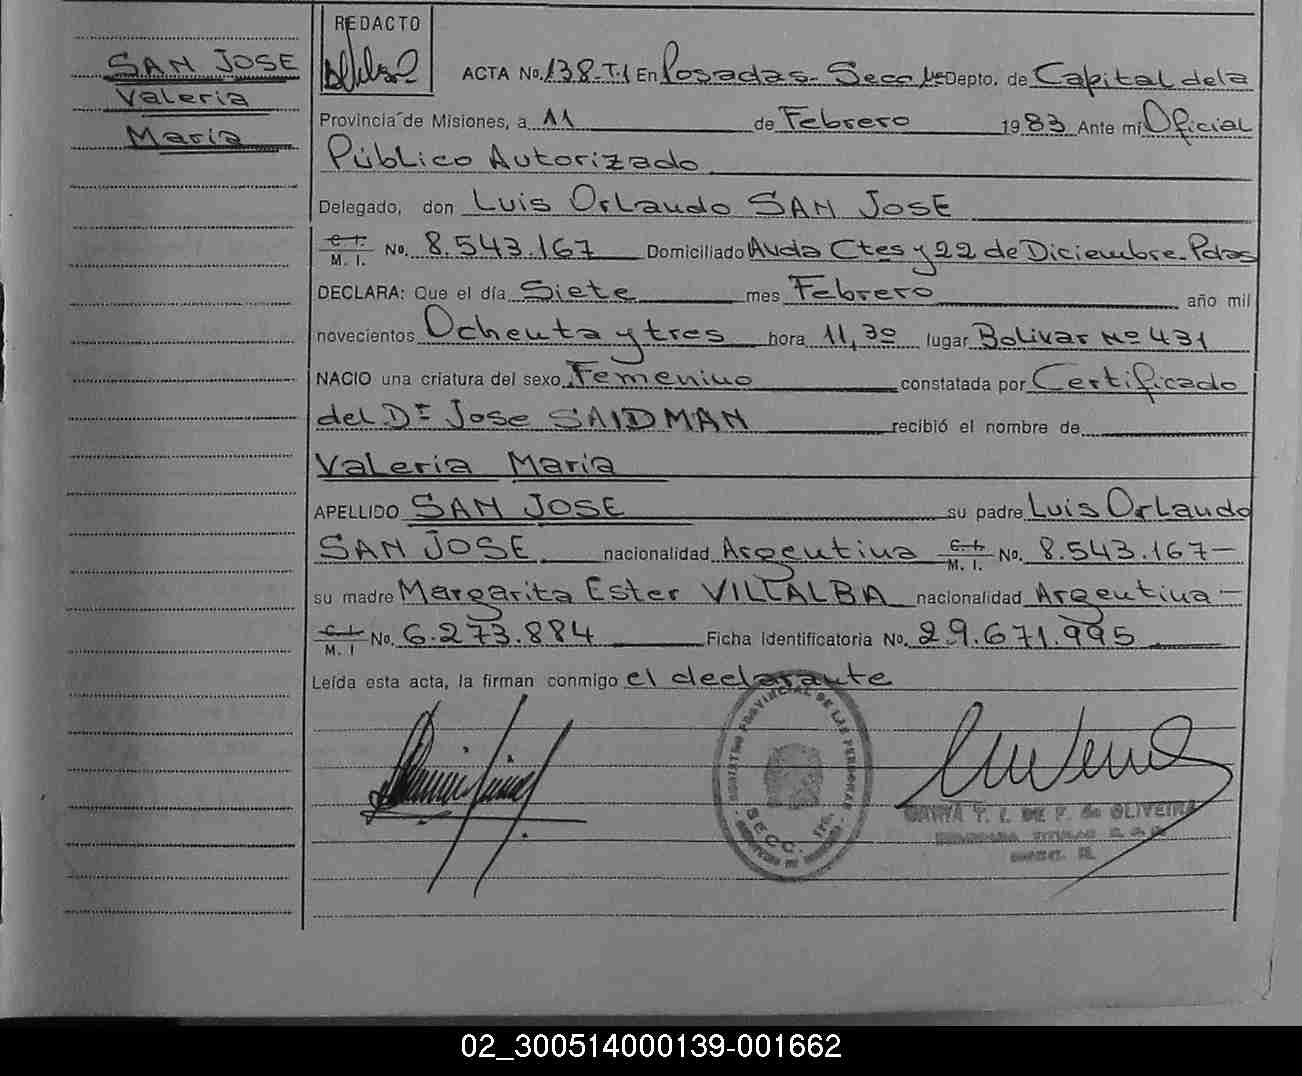 SAN JOSE
Valeria
Maria
REDACTO
ACTA No. 138-T.1 En Posadas - Secc 1ª Depto. de Capital de la
Provincia de Misiones, a 11 de Febrero 1983 Ante mi Oficial
Público Autorizado
Delegado, don Luis Orlando SAN JOSE
C. I. M. I. No. 8.543.167 Domiciliado Avda Ctes y 22 de Diciembre. Pdas
DECLARA: Que el día Siete mes Febrero año mil
novecientos Ochenta y tres hora 11,30 lugar Bolivar Nº 431
NACIO una criatura del sexo Femenino constatada por Certificado
del Dr Jose SAIDMAN recibió el nombre de
Valeria Maria
APELLIDO SAN JOSE su padre Luis Orlando
SAN JOSE nacionalidad Argentina C. I. M. I. No. 8.543.167-
su madre Margarita Ester VILLALBA nacionalidad Argentina-
C. I. M. I No. 6.273.884 Ficha Identificatoria No. 29.671.995
Leída esta acta, la firman conmigo el declarante
PROVINCIAL DE LAS PERSONAS
SECC. 1ra.
DE OLIVEIRA
02_300514000139-001662